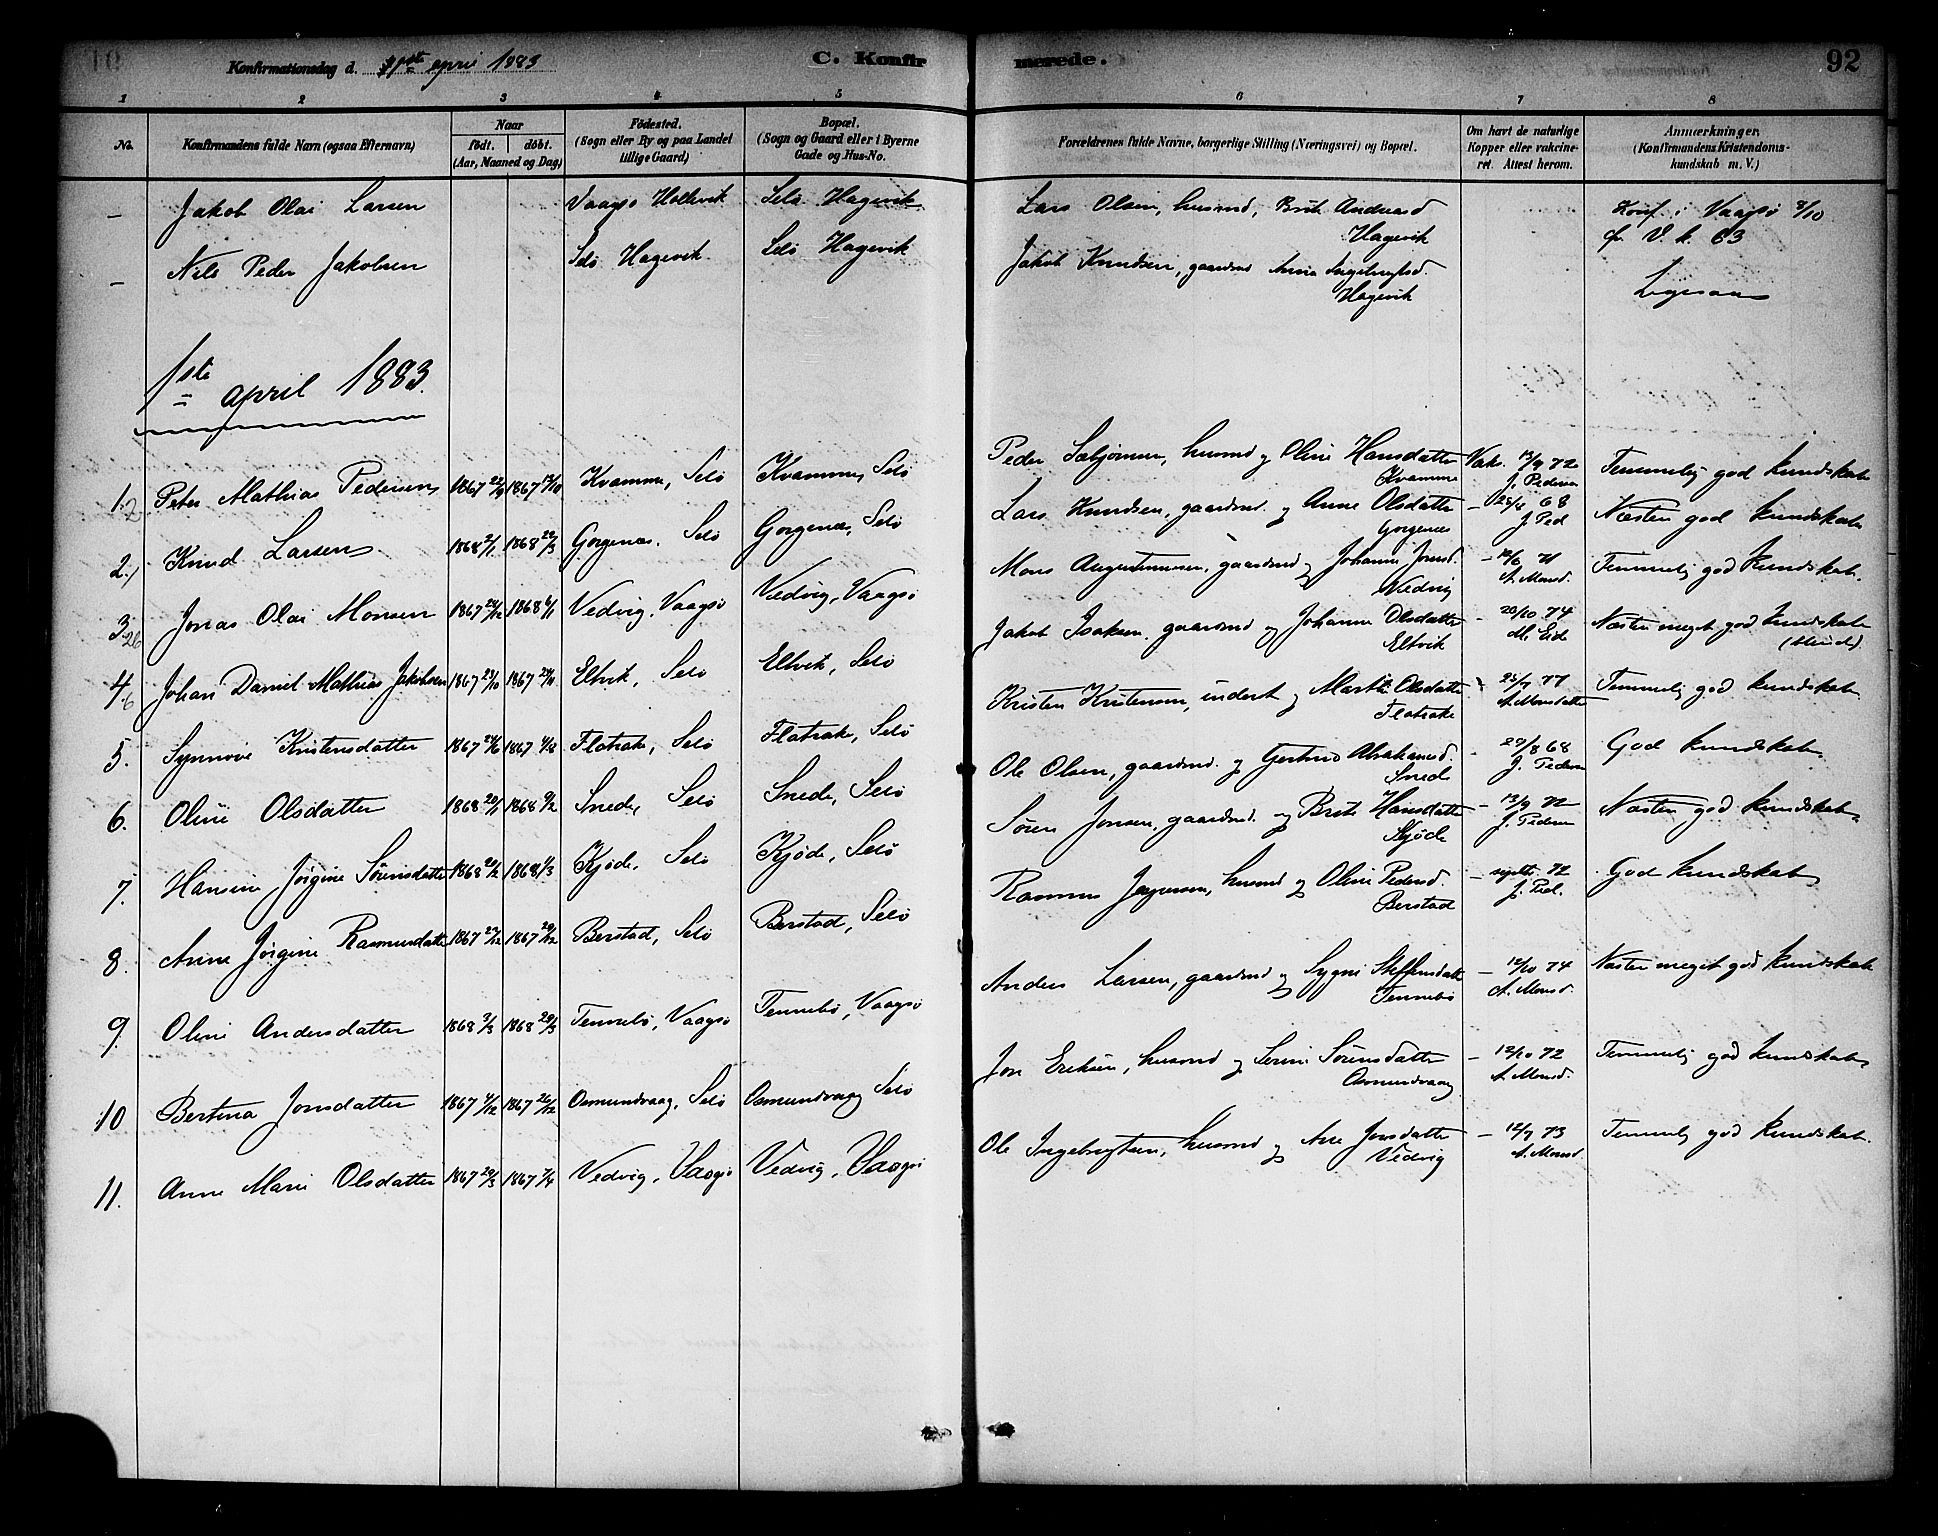 Konfirmationsdag d. 1ste april 1883 C. Konfirmerede. 92
1 2 3 4 5 6 7 8
No. Konfirmandens fulde Navn (ogsaa Efternavn) Naar födt. döbt. (Aar, Maaned og Dag) Födested. (Sogn eller By og paa Landet tillige Gaard) Bopæl. (Sogn og Gaard eller i Byerne Gade og Hus-No. Forældrenes fulde Navne, borgerlige Stilling (Næringsvei) og Bopæl. Om havt de naturlige Kopper eller vakcineret. Attest herom. Anmærkninger. (Konfirmandens Kristendomskundskab m. V.)
– Jakob Olai Larsen Vaagsø Holevik Selø Hagevik Lars Olsen, husmd, Brit Andreasd Hagevik Konf. i Vaagsø 8/10
– Nils Peder Jakobsen Selø Hagevik Selø Hagevik Jakob Knudsen, gaardmd Anna Ingebrigtsd. Hagevik Ligesaa
1ste april 1883.
1. Peter Mathias Pedersen 1867 22/9 1867 13/10 Kvamme, Selø Kvamme, Selø Peder Sæbjørnsen, husmd og Oline Hansdatter Kvamme Vak. 13/9 72 J. Pedersen Temmelig god kundskab
2. Knud Larsen 1868 2/1 1868 22/3 Gorgenæs, Selø Gorgenæs, Selø Lars Knudsen, gaardmd. og Anne Olsdatter Gorgenæs – 25/8 68 J. Ped Næsten god kundskab
3. Jonas Olai Monsen 1867 24/12 1868 6/1 Vedvig, Vaagsø Vedvig, Vaagsø Mons Augustinusen, gaardmd og Johanne Jonsd. Vedvig – 12/6 71 A. Monsd. Temmelig god kundskab.
4. Johan Daniel Mathias Jakobsen 1867 23/10 1867 24/11 Eltvik, Selø Eltvik, Selø Jakob Isaksen, gaardmd og Johanne Olsdatter Eltvik – 20/10 74 M. Eide Næsten meget god kundskab
5. Synnøve Kristensdatter 1867 24/6 1867 4/8 Flatrak, Selø Flatrak, Selø Kristen Kristensen, inderst og Marthe Olsdatter Flatrake – 25/7 77 A. Monsdatter Temmelig god kundskab
6. Oline Olsdatter 1868 20/1 1868 9/2 Snede, Selø Snede, Selø Ole Olsen, gaardmd. og Gertrud Abrahamsd. Snede – 29/8 68 J. Pedersen God kundskab
7. Hansine Jørgine Sørensdatter 1868 20/2 1868 1/3 Kjøde, Selø Kjøde, Selø Søren Jonsen, gaardmd. og Brite Hansdatter Kjøde – 13/9 72 J. Pedersen Næsten god kundskab
8. Anne Jørgine Rasmusdatter 1867 27/12 1867 29/12 Berstad, Selø Berstad, Selø Rasmus Jørgensen, husmd og Oline Pedersd. Berstad – septbr. 72 J. Ped. God kundskab
9. Oline Andersdatter 1868 3/3 1868 29/3 Tennebø, Vaagsø Tennebø, Vaagsø Anders Larsen, gaardmd og Sygni Steffensdatter Tennebø – 12/10 74 A. Monsd. Næsten meget god kundskab
10 Bertina Jonsdatter 1867 4/12 1867 26/12 Osmundvaag, Selø Osmundvaag Selø Jon Eriksen, husmd og Serine Sørensdatter Osmundvaag – 12/10 72 A. Monsd. Temmelig god kundskab
11. Anne Marie Olsdatter 1867 20/3 1867 7/4 Vedvig, Vaagsø Vedvig, Vaagsø Ole Ingebrigtsen, husmd og Ane Jonsdatter Vedvig – 12/7 73 A. Monsd. Temmelig god kundskab.